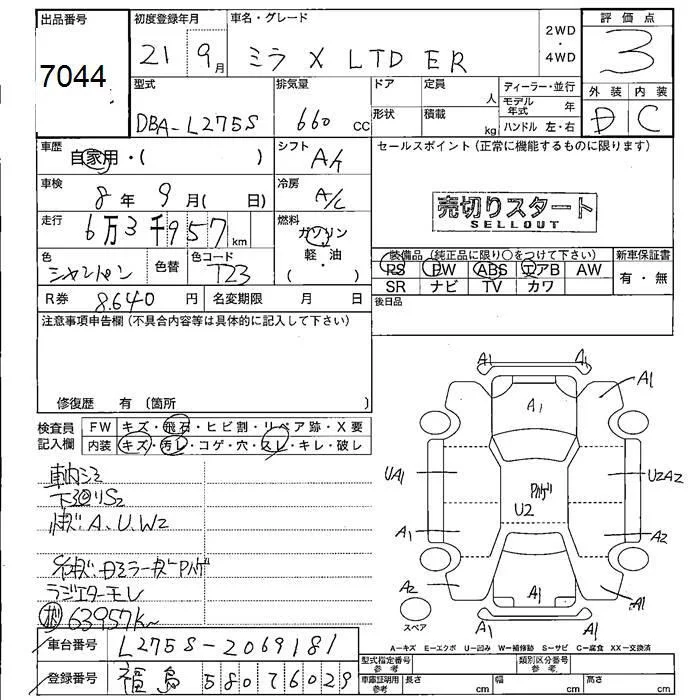 出品番号 初度登録年月 車名・グレード 2WD ・ 4WD 評価点
7044 21 9月 ミラ X LTD ER 3
型式 排気量 ドア 定員 人 ディーラー・並行 外装 内装
DBA-L275S 660 cc 形状 積載 kg モデル年式 年 D C
ハンドル 左・右
車歴 自家用・( ) シフト A/t セールスポイント (正常に機能するものに限ります)
車検 8年 9月( 日) 冷房 A/C
売切りスタート
SELLOUT
走行 6万3千957 km 燃料 ガソリン
軽・油
( )
色 シャンパン 色替 色コード T23
装備品 (純正品に限り○をつけて下さい) 新車保証書
PS PW ABS エアB AW 有・無
SR ナビ TV カワ
R券 8.640 円 名変期限 月 日 後日品
注意事項申告欄 (不具合内容等は具体的に記入して下さい)
修復歴 有 (箇所 )
検査員 記入欄
FW キズ・飛石・ヒビ割・リペア跡・X要
内装 キズ・汚レ・コゲ・穴・スレ・キレ・破レ
下回りS2
A、U、W2
ラジエターモレ
63957K
A1 A1
A1 A1
UA1 U2A2
U2 ハゲ
A1 A2
A2 A1 A1
A1 A1
スペア
A－キズ E－エクボ U－凹み W－補修跡 S－サビ C－腐食 XX－交換済
車台番号 L275S-2069181
登録番号 福島 580 ち 6029
型式指定番号 参考 類別区分番号 参考
車庫証明用 参考 長さ cm 幅 cm 高さ cm